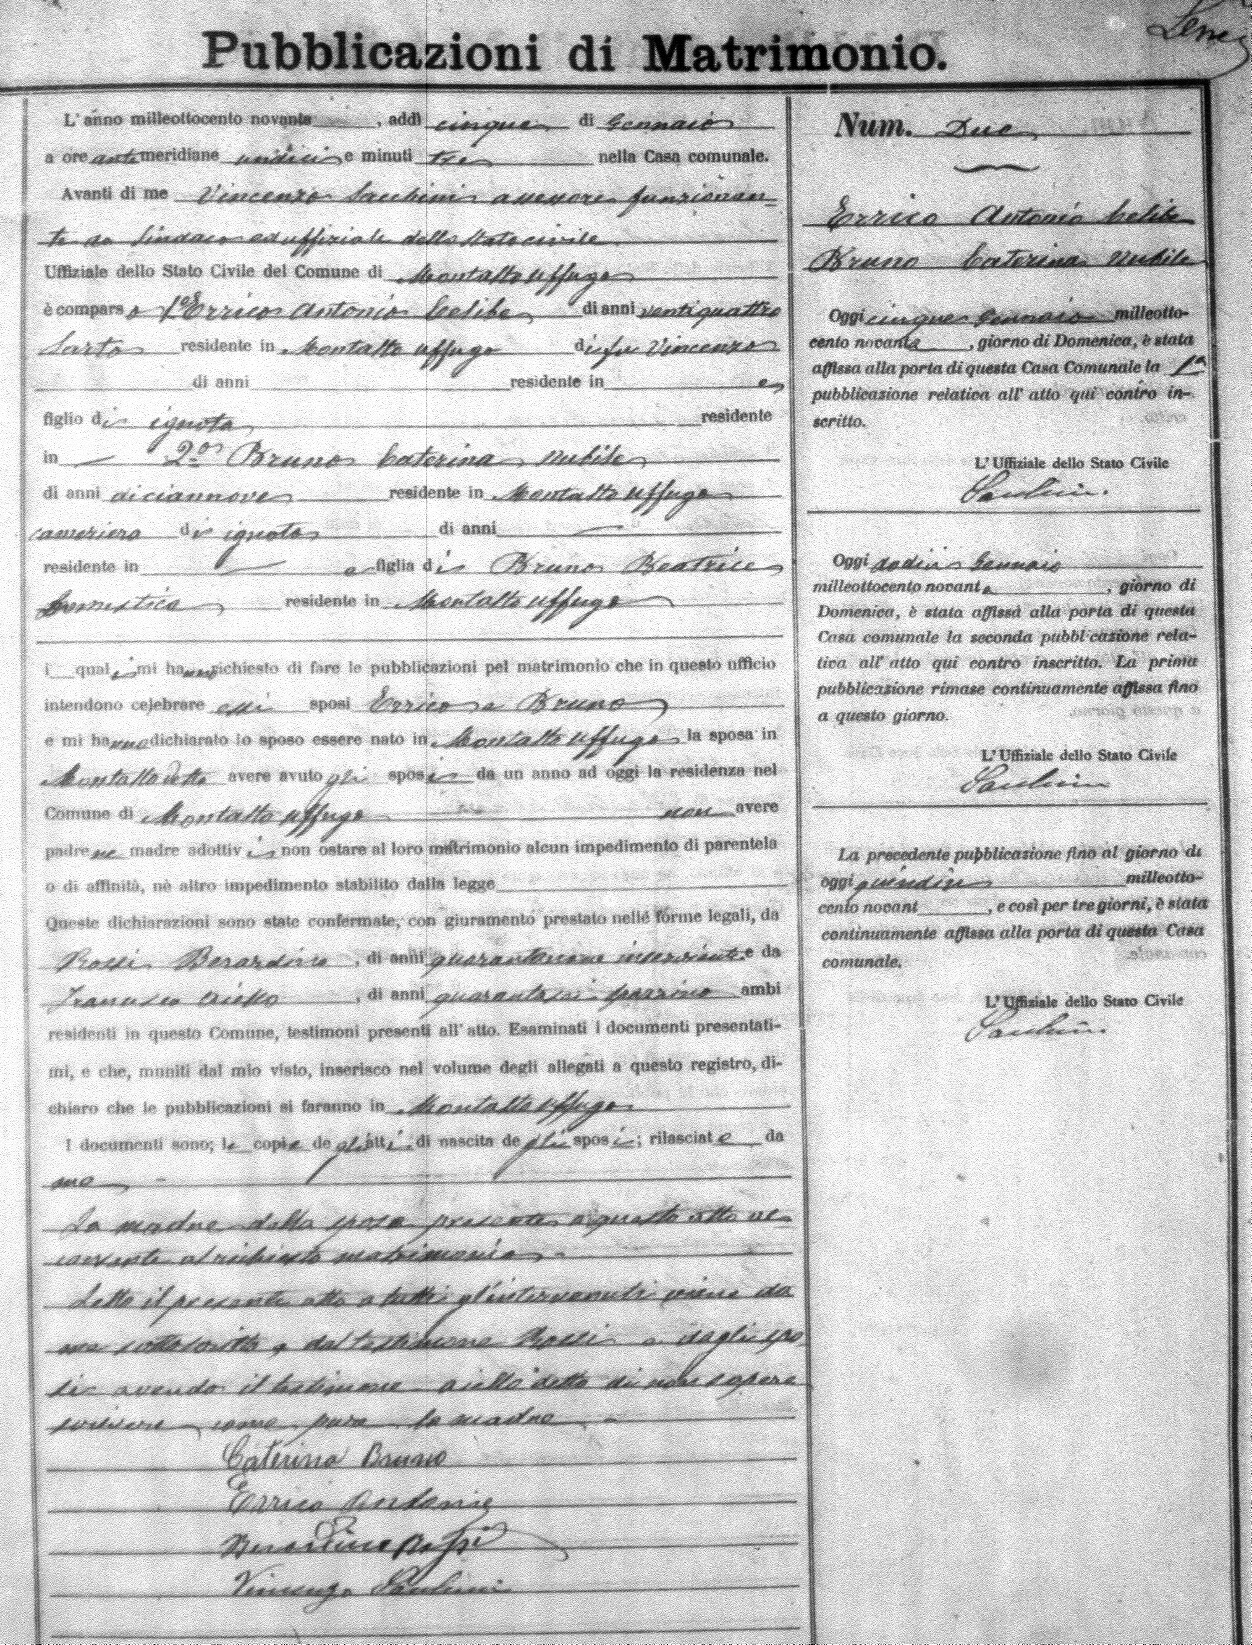 Pubblicazioni di Matrimonio.
L'anno milleottocento novanta, addì cinque di Gennaio
a ore antemeridiane undici e minuti tre nella Casa comunale.
Avanti di me Vincenzo assessore funzionan=
te da Sindaco ed uffiziale dello stato civile
Uffiziale dello Stato Civile del Comune di Montalto Uffugo
è comparso 1° Errico Antonio Celibe di anni ventiquattro
Sarto residente in Montalto Uffugo di fu Vincenzo
di anni residente in e
figlio di ignota residente
in — 2° Bruno Caterina nubile
di anni diciannove residente in Montalto Uffugo
cameriera di ignoto di anni —
residente in — e figlia di Bruno Beatrice
Domestica residente in Montalto Uffugo
i quali mi hanno richiesto di fare le pubblicazioni pel matrimonio che in questo ufficio
intendono celebrare essi sposi Errico e Bruno
e mi hanno dichiarato lo sposo essere nato in Montalto Uffugo la sposa in
Montalto detto avere avuto gli sposi da un anno ad oggi la residenza nel
Comune di Montalto Uffugo non avere
padre ne madre adottivi non ostare al loro matrimonio alcun impedimento di parentela
o di affinità, nè altro impedimento stabilito dalla legge
Queste dichiarazioni sono state confermate, con giuramento prestato nelle forme legali, da
Rossi Berardino, di anni quarantanove inserviente e da
Francesco Aiello, di anni quarantasei ambi
residenti in questo Comune, testimoni presenti all'atto. Esaminati i documenti presentati-
mi, e che, muniti dal mio visto, inserisco nel volume degli allegati a questo registro, di-
chiaro che le pubblicazioni si faranno in Montalto Uffugo
I documenti sono; le copie degli atti di nascita degli sposi; rilasciate da
me
La madre della sposa presente a questo atto ac=
consente al richiesto matrimonio
Letto il presente atto a tutti gl'intervenuti viene da
me sottoscritto e dal testimone Rossi e dagli spo
si avendo il testimone Aiello detto di non sapere
scrivere come pure la madre
Caterina Bruno
Errico Antonio
Berardino Rossi
Vincenzo
Num. Due
Errico Antonio Celibe
Bruno Caterina nubile
Oggi cinque Gennaio milleotto-
cento novanta, giorno di Domenica, è stata
affissa alla porta di questa Casa Comunale la 1ª
pubblicazione relativa all'atto qui contro in-
scritto.
L'Uffiziale dello Stato Civile
Oggi dodici Gennaio
milleottocento novanta, giorno di
Domenica, è stata affissa alla porta di questa
Casa comunale la seconda pubblicazione rela-
tiva all'atto qui contro inscritto. La prima
pubblicazione rimase continuamente affissa fino
a questo giorno.
L'Uffiziale dello Stato Civile
La precedente pubblicazione fino al giorno di
oggi quindici milleotto-
cento novant, e così per tre giorni, è stata
continuamente affissa alla porta di questa Casa
comunale.
L'Uffiziale dello Stato Civile